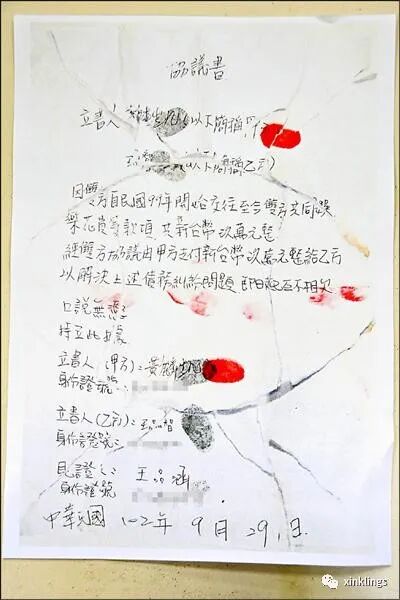 協議書
立書人 (以下簡稱甲方)
(以下簡稱乙方)
因雙方自民國99年開始交往至今雙方共同娛
樂花費等款項 共新台幣 萬元整
經雙方協議由甲方支付新台幣 萬元整給乙方
以解決上述債務糾紛問題 即日起互不相欠
口說無憑
特立此據
立書人(甲方):黃
身份證號:
立書人(乙方):王品智
身份證號:
見證人: 王品涵
身份證號
中華民國 102年 9月 29日
xinklings